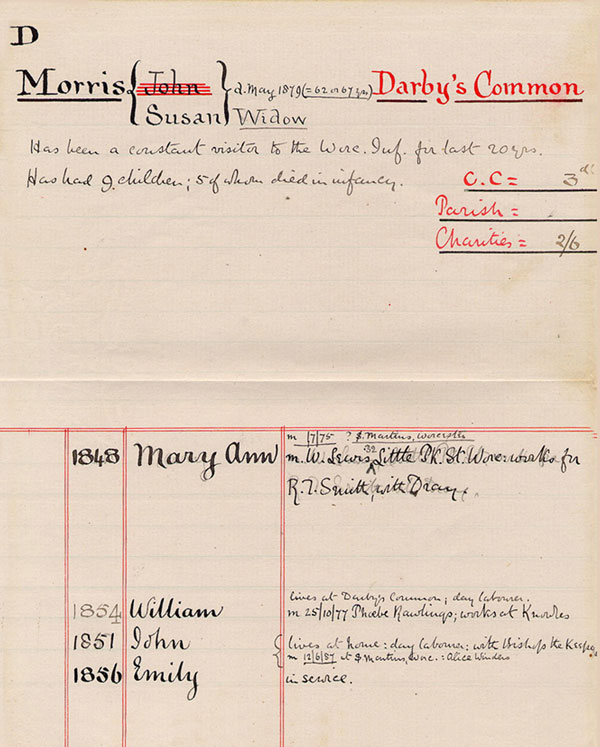 D
Morris { John } d. May 1879 (= 62 or 67 yrs) Darby's Common
Susan Widow
Has been a constant visitor to the Worc. Inf. for last 20 yrs.
Has had 9 children; 5 of whom died in infancy.
C.C = 3d
Parish =
Charities = 2/6
m 1/7/75 ? S. Martins, Worcester
1848 Mary Ann m. W. Lewis, 32 Little Pk. St. Worc: works for
R. T. Smith, with Dray.
lives at Darby's Common; day labourer.
1854 William m 25/10/77 Phoebe Rawlings; works at
1851 John { lives at home: day labourer: with Bishops the Keeper
m 12/6/87 at S. Martins, Worc.: Alice Winders
1856 Emily in service.